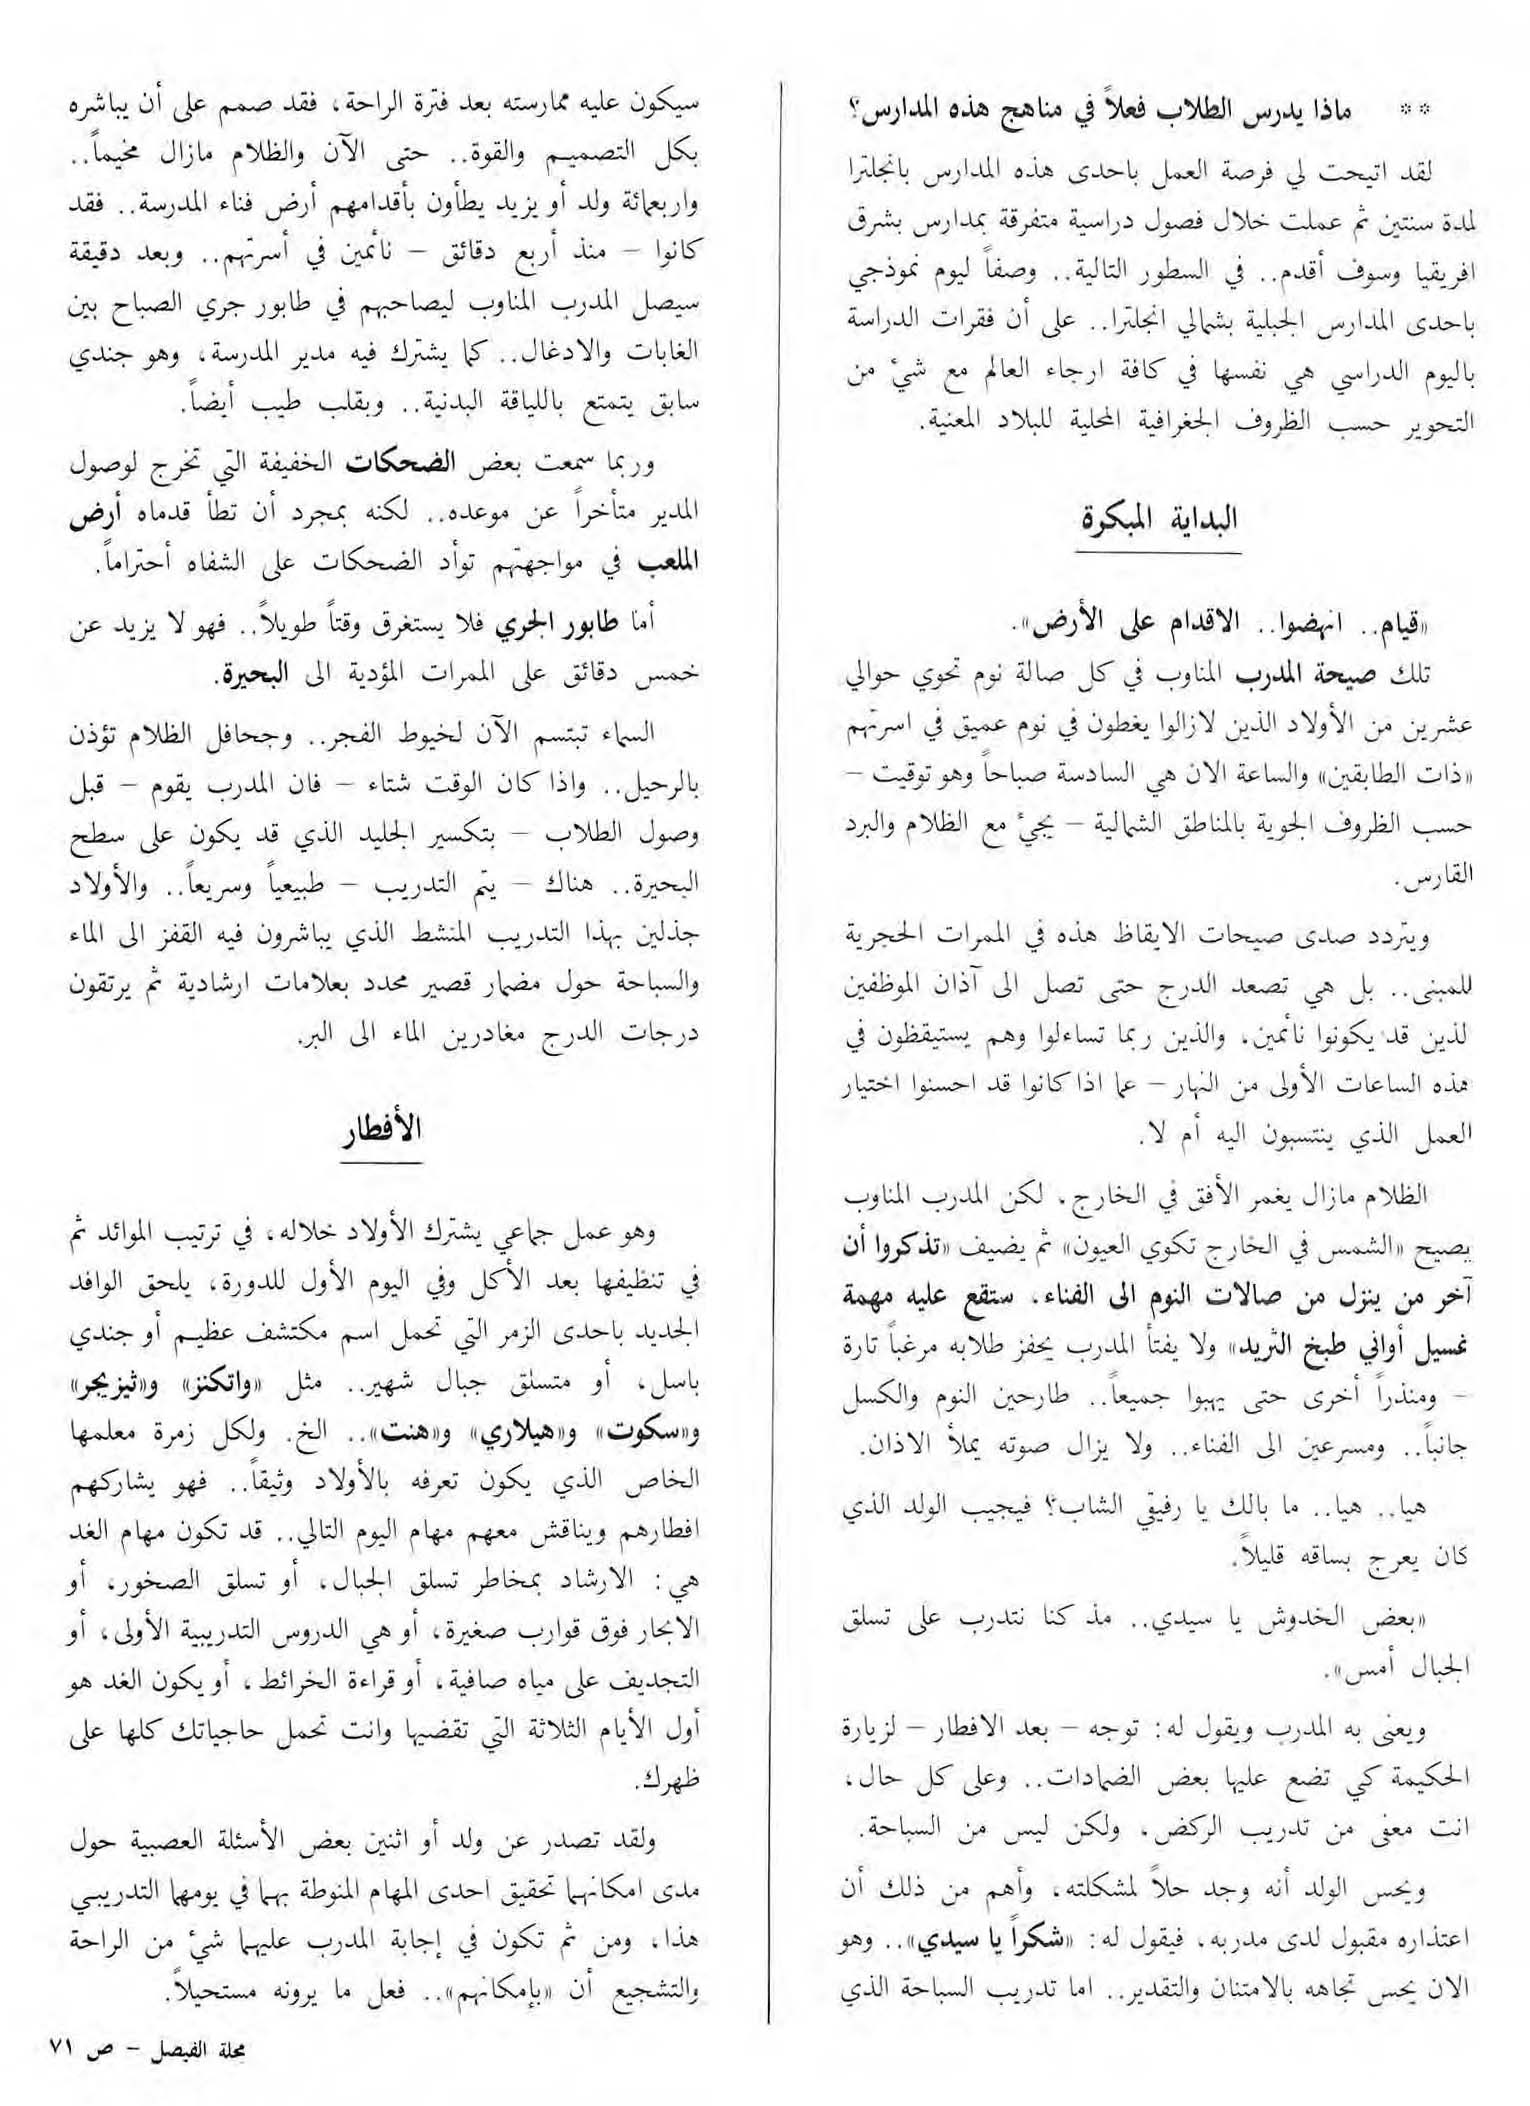 ** ماذا يدرس الطلاب فعلاً في مناهج هذه المدارس؟
لقد اتيحت لي فرصة العمل باحدى هذه المدارس بانجلترا
لمدة سنتين ثم عملت خلال فصول دراسية متفرقة بمدارس بشرق
افريقيا وسوف أقدم.. في السطور التالية.. وصفاً ليوم نموذجي
باحدى المدارس الجبلية بشمالي انجلترا.. على أن فقرات الدراسة
باليوم الدراسي هي نفسها في كافة ارجاء العالم مع شيء من
التحوير حسب الظروف الجغرافية المحلية للبلاد المعنية.
البداية المبكرة
«قيام.. انهضوا.. الاقدام على الأرض».
تلك صيحة المدرب المناوب في كل صالة نوم تحوي حوالي
عشرين من الأولاد الذين لازالوا يغطون في نوم عميق في اسرتهم
«ذات الطابقين» والساعة الان هي السادسة صباحاً وهو توقيت –
حسب الظروف الجوية بالمناطق الشمالية – يجيء مع الظلام والبرد
القارس.
ويتردد صدى صيحات الايقاظ هذه في الممرات الحجرية
للمبنى.. بل هي تصعد الدرج حتى تصل الى آذان الموظفين
لذين قد يكونوا نائمين، والذين ربما تساءلوا وهم يستيقظون في
هذه الساعات الأولى من النهار – عما اذا كانوا قد احسنوا اختيار
العمل الذي ينتسبون اليه أم لا.
الظلام مازال يغمر الأفق في الخارج، لكن المدرب المناوب
يصيح «الشمس في الخارج تكوي العيون» ثم يضيف «تذكروا أن
آخر من ينزل من صالات النوم الى الفناء، ستقع عليه مهمة
غسيل أواني طبخ الثريد» ولا يفتأ المدرب يحفز طلابه مرغباً تارة
– ومنذراً أخرى حتى يهبوا جميعاً.. طارحين النوم والكسل
جانباً.. ومسرعين الى الفناء.. ولا يزال صوته يملأ الاذان.
هيا.. هيا.. ما بالك يا رفيقي الشاب؟ فيجيب الولد الذي
كان يعرج بساقه قليلاً.
«بعض الخدوش يا سيدي.. مذ كنا نتدرب على تسلق
الجبال أمس».
ويعنى به المدرب ويقول له: توجه – بعد الافطار – لزيارة
الحكيمة كي تضع عليها بعض الضمادات.. وعلى كل حال،
انت معفى من تدريب الركض، ولكن ليس من السباحة.
ويحس الولد أنه وجد حلاً لمشكلته، وأهم من ذلك أن
اعتذاره مقبول لدى مدربه، فيقول له: «شكراً يا سيدي».. وهو
الان يحس تجاهه بالامتنان والتقدير.. اما تدريب السباحة الذي
سيكون عليه ممارسته بعد فترة الراحة، فقد صمم على أن يباشره
بكل التصميم والقوة.. حتى الآن والظلام مازال مخيماً..
واربعمائة ولد أو يزيد يطأون بأقدامهم أرض فناء المدرسة.. فقد
كانوا – منذ أربع دقائق – نائمين في أسرتهم.. وبعد دقيقة
سيصل المدرب المناوب ليصاحبهم في طابور جري الصباح بين
الغابات والادغال.. كما يشترك فيه مدير المدرسة، وهو جندي
سابق يتمتع باللياقة البدنية.. وبقلب طيب أيضاً.
وربما سمعت بعض الضحكات الخفيفة التي تخرج لوصول
المدير متأخراً عن موعده.. لكنه بمجرد أن تطأ قدماه أرض
الملعب في مواجهتهم توأد الضحكات على الشفاه أحتراماً.
أما طابور الجري فلا يستغرق وقتاً طويلاً.. فهو لا يزيد عن
خمس دقائق على الممرات المؤدية الى البحيرة.
السماء تبتسم الآن لخيوط الفجر.. وجحافل الظلام تؤذن
بالرحيل.. واذا كان الوقت شتاء – فان المدرب يقوم – قبل
وصول الطلاب – بتكسير الجليد الذي قد يكون على سطح
البحيرة.. هناك – يتم التدريب – طبيعياً وسريعاً.. والأولاد
جذلين بهذا التدريب المنشط الذي يباشرون فيه القفز الى الماء
والسباحة حول مضمار قصير محدد بعلامات ارشادية ثم يرتقون
درجات الدرج مغادرين الماء الى البر.
الأفطار
وهو عمل جماعي يشترك الأولاد خلاله، في ترتيب الموائد ثم
في تنظيفها بعد الأكل وفي اليوم الأول للدورة، يلحق الوافد
الجديد باحدى الزمر التي تحمل اسم مكتشف عظيم أو جندي
باسل، أو متسلق جبال شهير.. مثل «واتكنز» و«ثيزيجر»
و«سكوت» و«هيلاري» و«هنت».. الخ. ولكل زمرة معلمها
الخاص الذي يكون تعرفه بالأولاد وثيقاً.. فهو يشاركهم
افطارهم ويناقش معهم مهام اليوم التالي.. قد تكون مهام الغد
هي: الارشاد بمخاطر تسلق الجبال، أو تسلق الصخور، أو
الابحار فوق قوارب صغيرة، أو هي الدروس التدريبية الأولى، أو
التجديف على مياه صافية، أو قراءة الخرائط، أو يكون الغد هو
أول الأيام الثلاثة التي تقضيها وانت تحمل حاجياتك كلها على
ظهرك.
ولقد تصدر عن ولد أو اثنين بعض الأسئلة العصبية حول
مدى امكانهما تحقيق احدى المهام المنوطة بهما في يومهما التدريبي
هذا، ومن ثم تكون في إجابة المدرب عليهما شيء من الراحة
والتشجيع أن «بإمكانهم».. فعل ما يرونه مستحيلاً.
مجلة الفيصل – ص ٧١